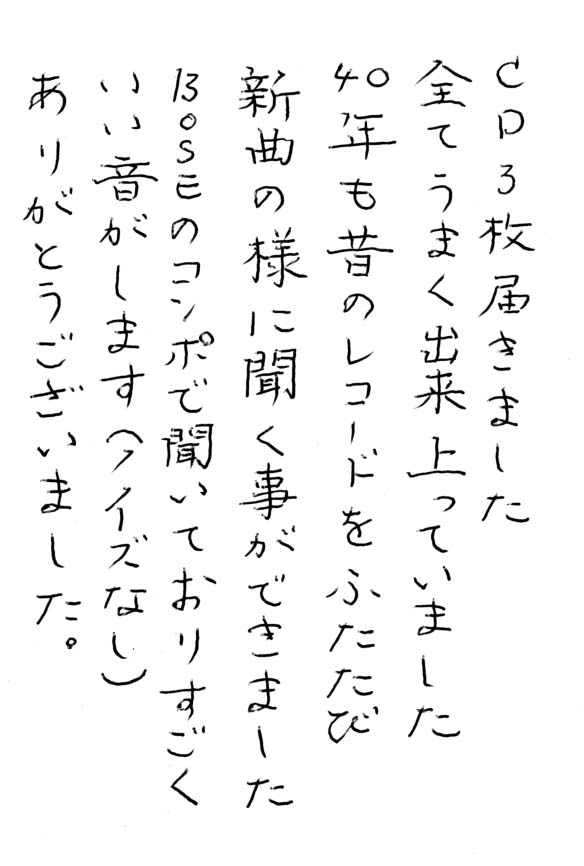 CD3枚届きました
全てうまく出来上っていました
40年も昔のレコードをふたたび
新曲の様に聞く事ができました
BOSEのコンポで聞いておりすごく
いい音がします(ノイズなし)
ありがとうございました。